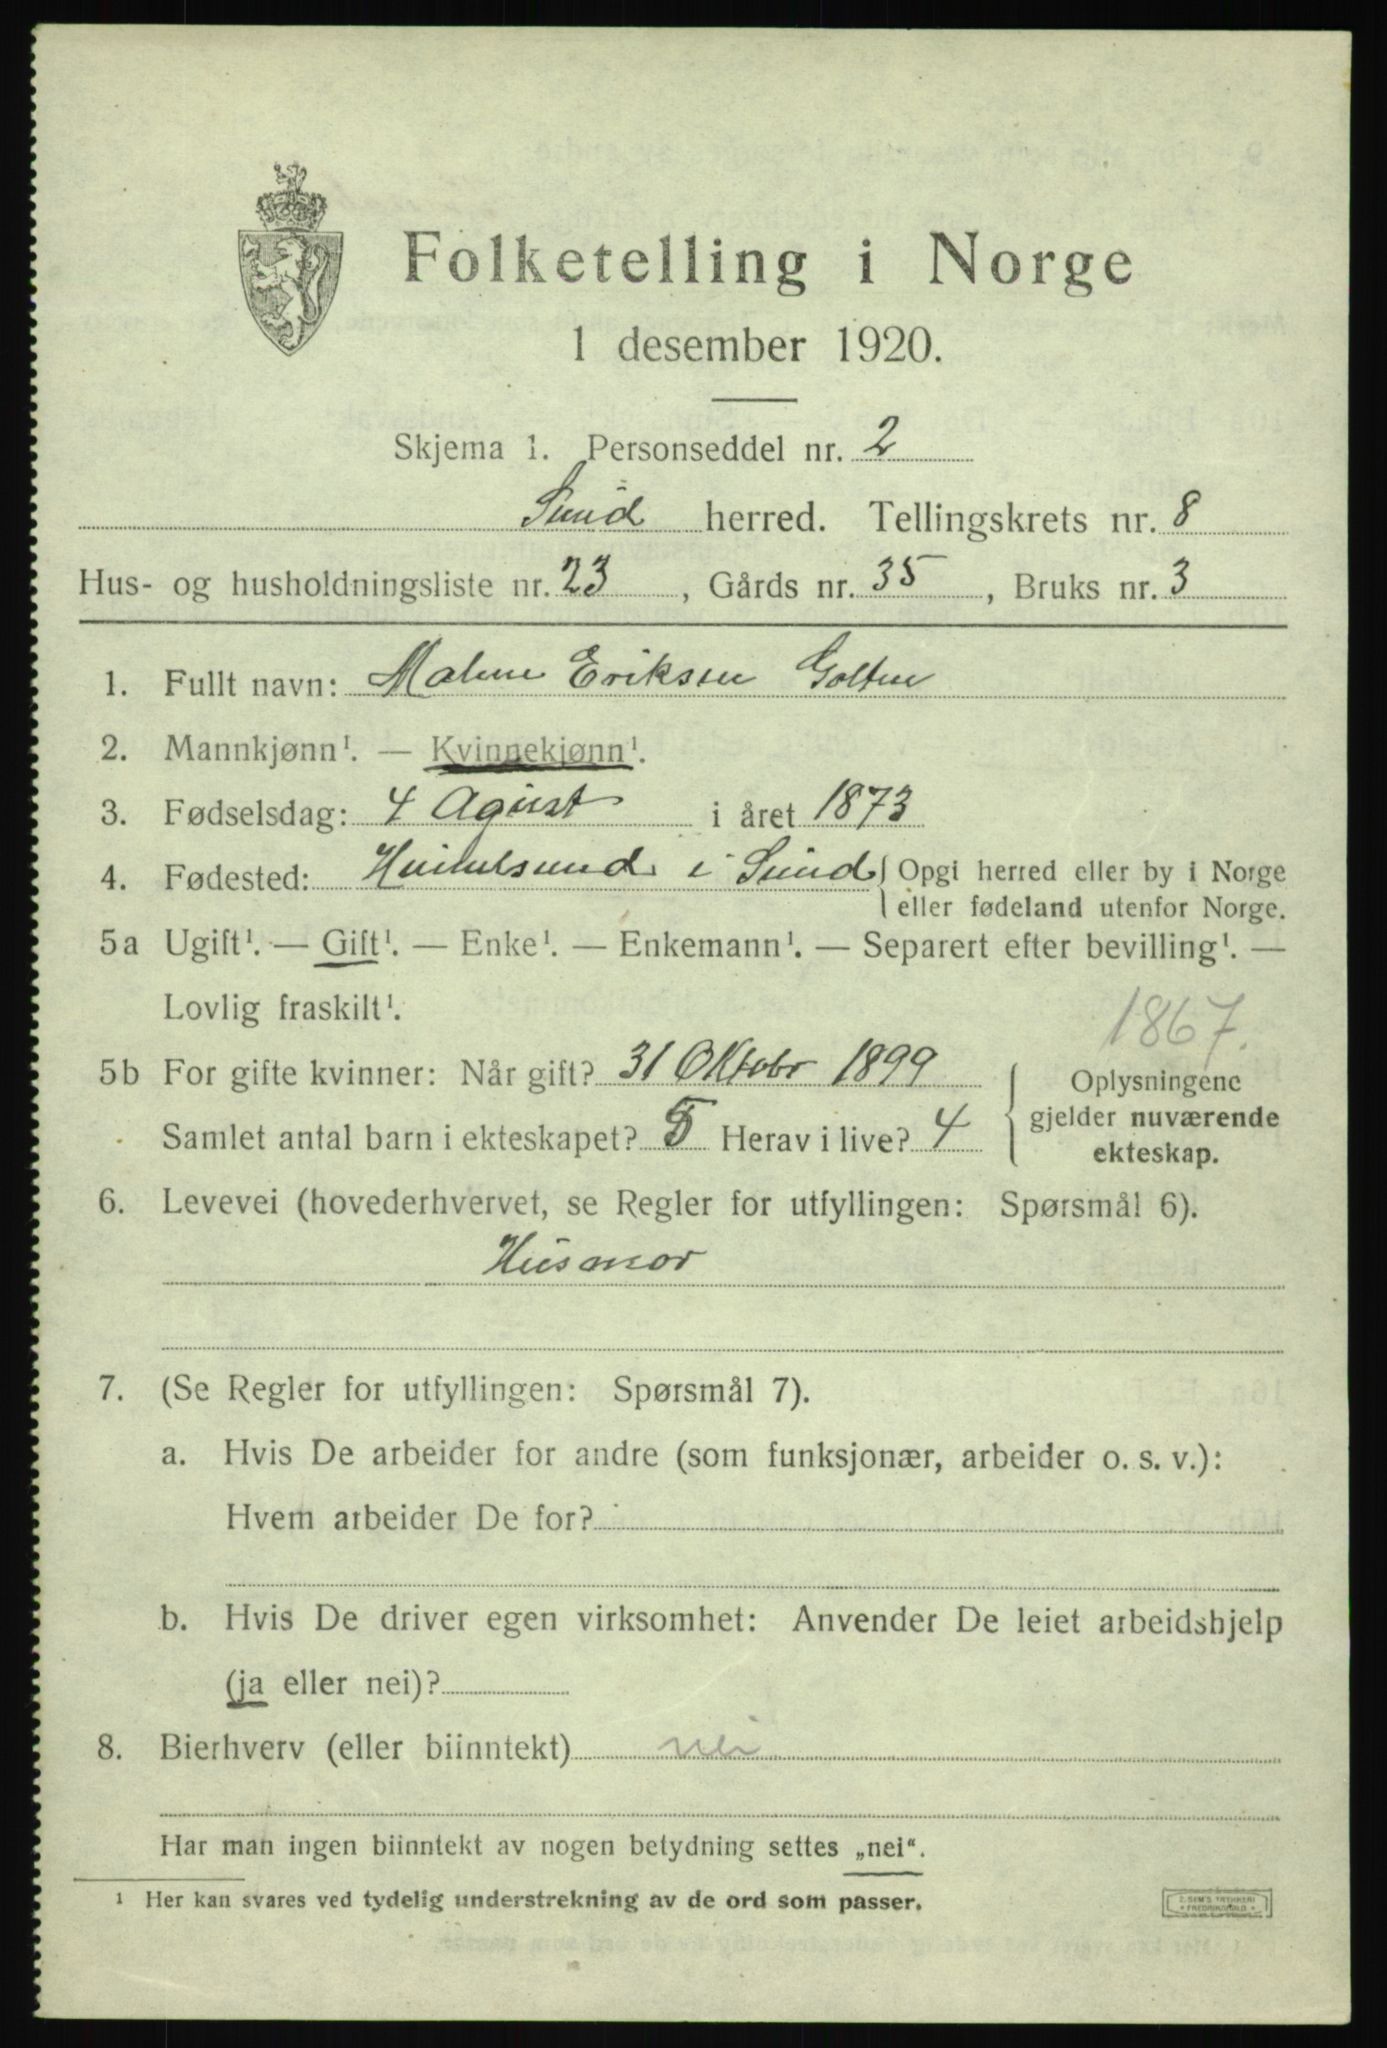 Folketelling i Norge
1 desember 1920.
Skjema 1. Personseddel nr. 2
Sund herred. Tellingskrets nr. 8
Hus- og husholdningsliste nr. 23, Gårds nr. 35, Bruks nr. 3
1. Fullt navn: Malene Eriksen Golten
2. Mannkjønn¹. — Kvinnekjønn¹.
3. Fødselsdag: 4 Agust i året 1873
4. Fødested: i Sund { Opgi herred eller by i Norge
eller fødeland utenfor Norge.
5a Ugift¹. — Gift¹. — Enke¹. — Enkemann¹. — Separert efter bevilling¹. —
Lovlig fraskilt¹.
1867.
5b For gifte kvinner: Når gift? 31 Oktobr 1899
Samlet antal barn i ekteskapet? 5 Herav i live? 4
{ Oplysningene
gjelder nuværende
ekteskap.
6. Levevei (hovederhvervet, se Regler for utfyllingen: Spørsmål 6).
Husmor
7. (Se Regler for utfyllingen: Spørsmål 7).
a. Hvis De arbeider for andre (som funksjonær, arbeider o. s. v.):
Hvem arbeider De for?
b. Hvis De driver egen virksomhet: Anvender De leiet arbeidshjelp
(ja eller nei)?
8. Bierhverv (eller biinntekt) nei
Har man ingen biinntekt av nogen betydning settes „nei“.
¹ Her kan svares ved tydelig understrekning av de ord som passer.